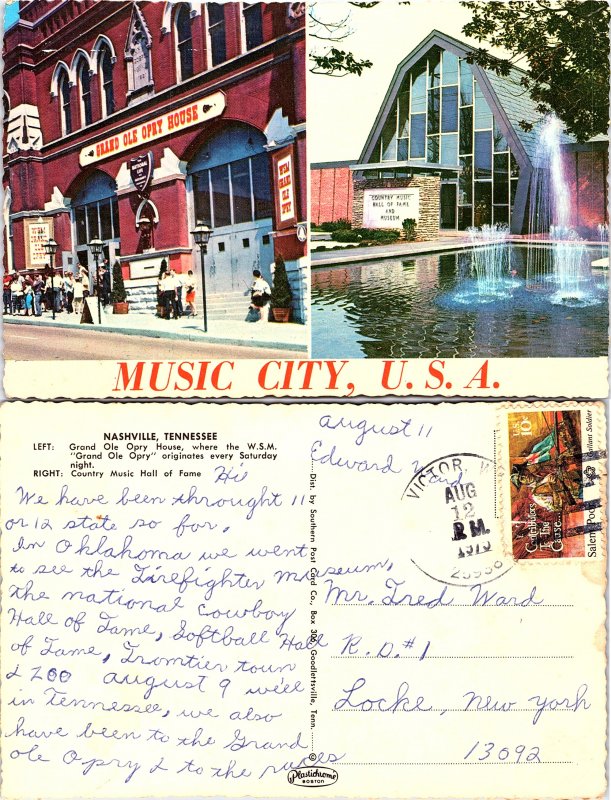 GRAND OLE OPRY HOUSE
WSM
GRAND
OLE
OPRY
COUNTRY MUSIC
HALL OF FAME
AND
MUSEUM
MUSIC CITY, U. S. A.
NASHVILLE, TENNESSEE
LEFT: Grand Ole Opry House, where the W.S.M.
"Grand Ole Opry" originates every Saturday
night.
RIGHT: Country Music Hall of Fame
Hi
We have been throught 11
or 12 state so for,
In Oklahoma we went
to see the Firefighter museum,
the national Cowboy
Hall of Fame, Softball Hall
of Fame, Fromtier town
& Zoo august 9 we'll
in Tennessee, we also
have been to the Grand
ole Opry & to the races
august 11
Edward Ward
Dist. by Southern Post Card Co., Box 306, Goodlettsville, Tenn.
© Plastichrome
BOSTON
VICTOR, W
AUG
12
P.M.
1975
25938
US 10c
Contributors
To The
Cause...
Salem Poor
Gallant Soldier
Mr. Fred Ward
R.D.#1
Locke, New York
13092